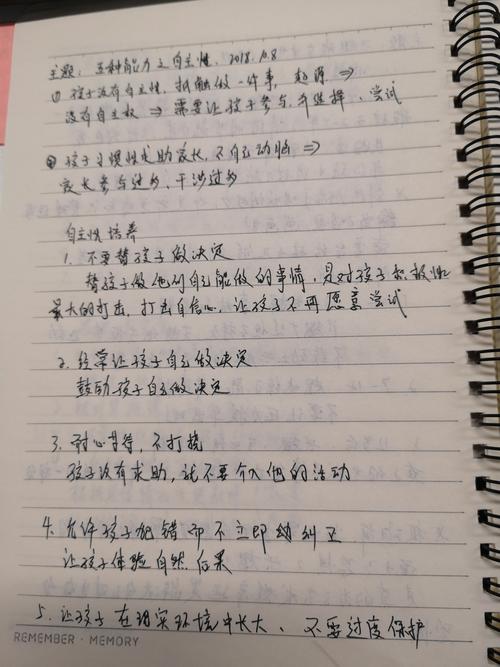 主题：五种能力之自主性. 2018.10.8
① 孩子没有自主性，抵触做一件事，起源 ⇒
没有自主权 ⇒ 需要让孩子参与，并选择、尝试
② 孩子习惯性求助家长，不自己动脑 ⇒
家长参与过多，干涉过多
自主性培养
1. 不要替孩子做决定
替孩子做他们自己能做的事情，是对孩子积极性
最大的打击，打击自信心，让孩子不再愿意尝试
2. 经常让孩子自己做决定
鼓励孩子自己做决定
3. 耐心等待，不打扰
孩子没有求助，就不要介入他的活动
4. 允许孩子犯错而不立即纠正
让孩子体验自然后果
5. 让孩子在现实环境中长大、不要过度保护
REMEMBER · MEMORY